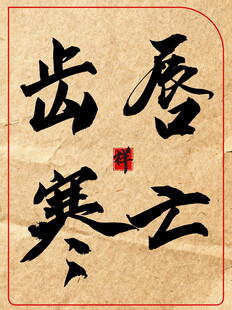 唇亡
齿寒
祥